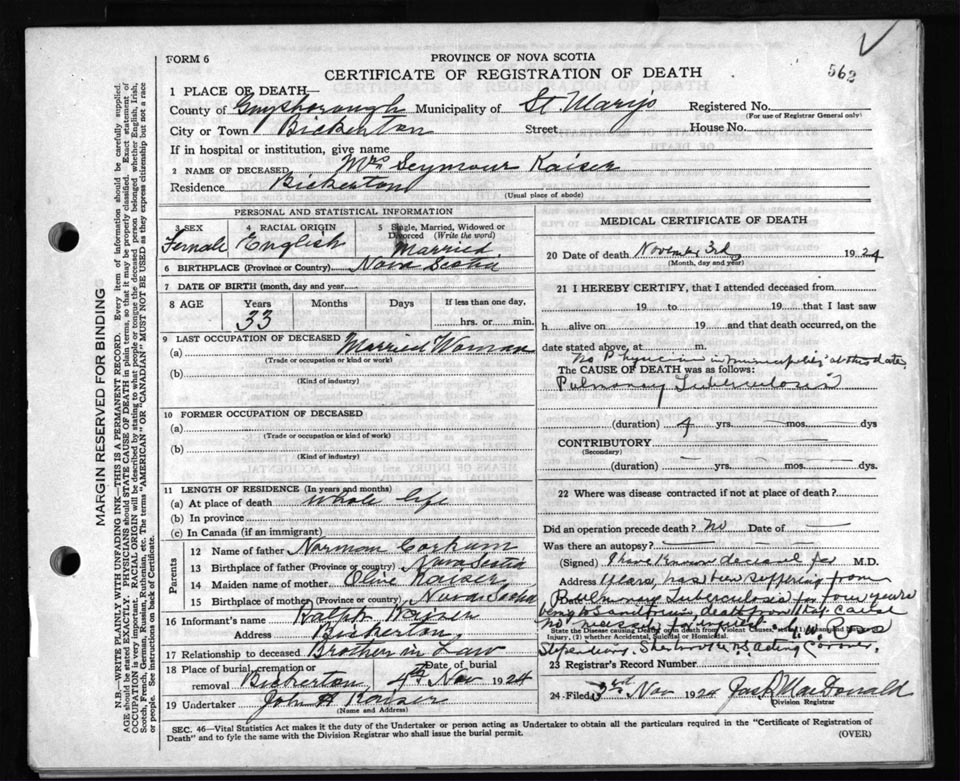 562
FORM 6
PROVINCE OF NOVA SCOTIA
CERTIFICATE OF REGISTRATION OF DEATH
1 PLACE OF DEATH—
County of Guysborough Municipality of St Marys Registered No.
(For use of Registrar General only)
City or Town Bickerton Street House No.
If in hospital or institution, give name
2 NAME OF DECEASED Mrs Seymour Kaiser
Residence Bickerton
(Usual place of abode)
PERSONAL AND STATISTICAL INFORMATION
3 SEX Female
4 RACIAL ORIGIN English
5 Single, Married, Widowed or Divorced (Write the word) Married
6 BIRTHPLACE (Province or Country) Nova Scotia
7 DATE OF BIRTH (month, day and year)
8 AGE Years 33 Months Days If less than one day, hrs. or min.
9 LAST OCCUPATION OF DECEASED
(a) Married Woman
(Trade or occupation or kind or work)
(b)
(Kind of industry)
10 FORMER OCCUPATION OF DECEASED
(a)
(Trade or occupation or kind of work)
(b)
(Kind of industry)
11 LENGTH OF RESIDENCE (In years and months)
(a) At place of death Whole life
(b) In province
(c) In Canada (if an immigrant)
Parents
12 Name of father Norman Corkum
13 Birthplace of father (Province or Country) Nova Scotia
14 Maiden name of mother Olive Kaiser
15 Birthplace of mother (Province or Country) Nova Scotia
16 Informant's name Ralph Kaiser
Address Bickerton
17 Relationship to deceased Brother in Law
18 Place of burial, cremation or removal Bickerton Date of burial 4th Nov 1924
19 Undertaker John H Kaiser
(Name and Address)
MEDICAL CERTIFICATE OF DEATH
20 Date of death November 3rd 1924
(Month, day and year)
21 I HEREBY CERTIFY, that I attended deceased from
19 to 19 that I last saw
h alive on 19 and that death occurred, on the
date stated above, at m.
No Physician in municipality at this date
The CAUSE OF DEATH was as follows:
Pulmonary Tuberculosis
(duration) 4 yrs. mos. dys
CONTRIBUTORY
(Secondary)
(duration) yrs. mos. dys.
22 Where was disease contracted if not at place of death?
Did an operation precede death? No Date of
Was there an autopsy?
(Signed) I have known deceased for M.D.
Address Years, has been suffering from
Pulmonary Tuberculosis for four years
death from that cause
No necessity for inquest.
State the Disease causing Death, or in death from Violent Causes, state (1) Means and Nature of Injury, (2) whether Accidental, Suicidal or Homicidal.
Stipendiary, Sherbrooke N.S. acting Coroner
23 Registrar's Record Number
24 Filed 3rd Nov 1924 MacDonald
Division Registrar
SEC. 46—Vital Statistics Act makes it the duty of the Undertaker or person acting as Undertaker to obtain all the particulars required in the "Certificate of Registration of
Death" and to fyle the same with the Division Registrar who shall issue the burial permit. (OVER)
MARGIN RESERVED FOR BINDING
N.B.—WRITE PLAINLY WITH UNFADING INK—THIS IS A PERMANENT RECORD. Every item of information should be carefully supplied.
AGE should be stated EXACTLY. PHYSICIANS should STATE CAUSE OF DEATH in plain terms, so that it may be properly classified. Exact statement of
OCCUPATION is very important. RACIAL ORIGIN will be described by stating to what people or tongue the deceased person belonged whether English, Irish,
Scotch, French, German, Russian, Ruthenian, etc. The terms "AMERICAN" or "CANADIAN" MUST NOT BE USED as they express citizenship but not a race
or people. See instructions on back of Certificate.